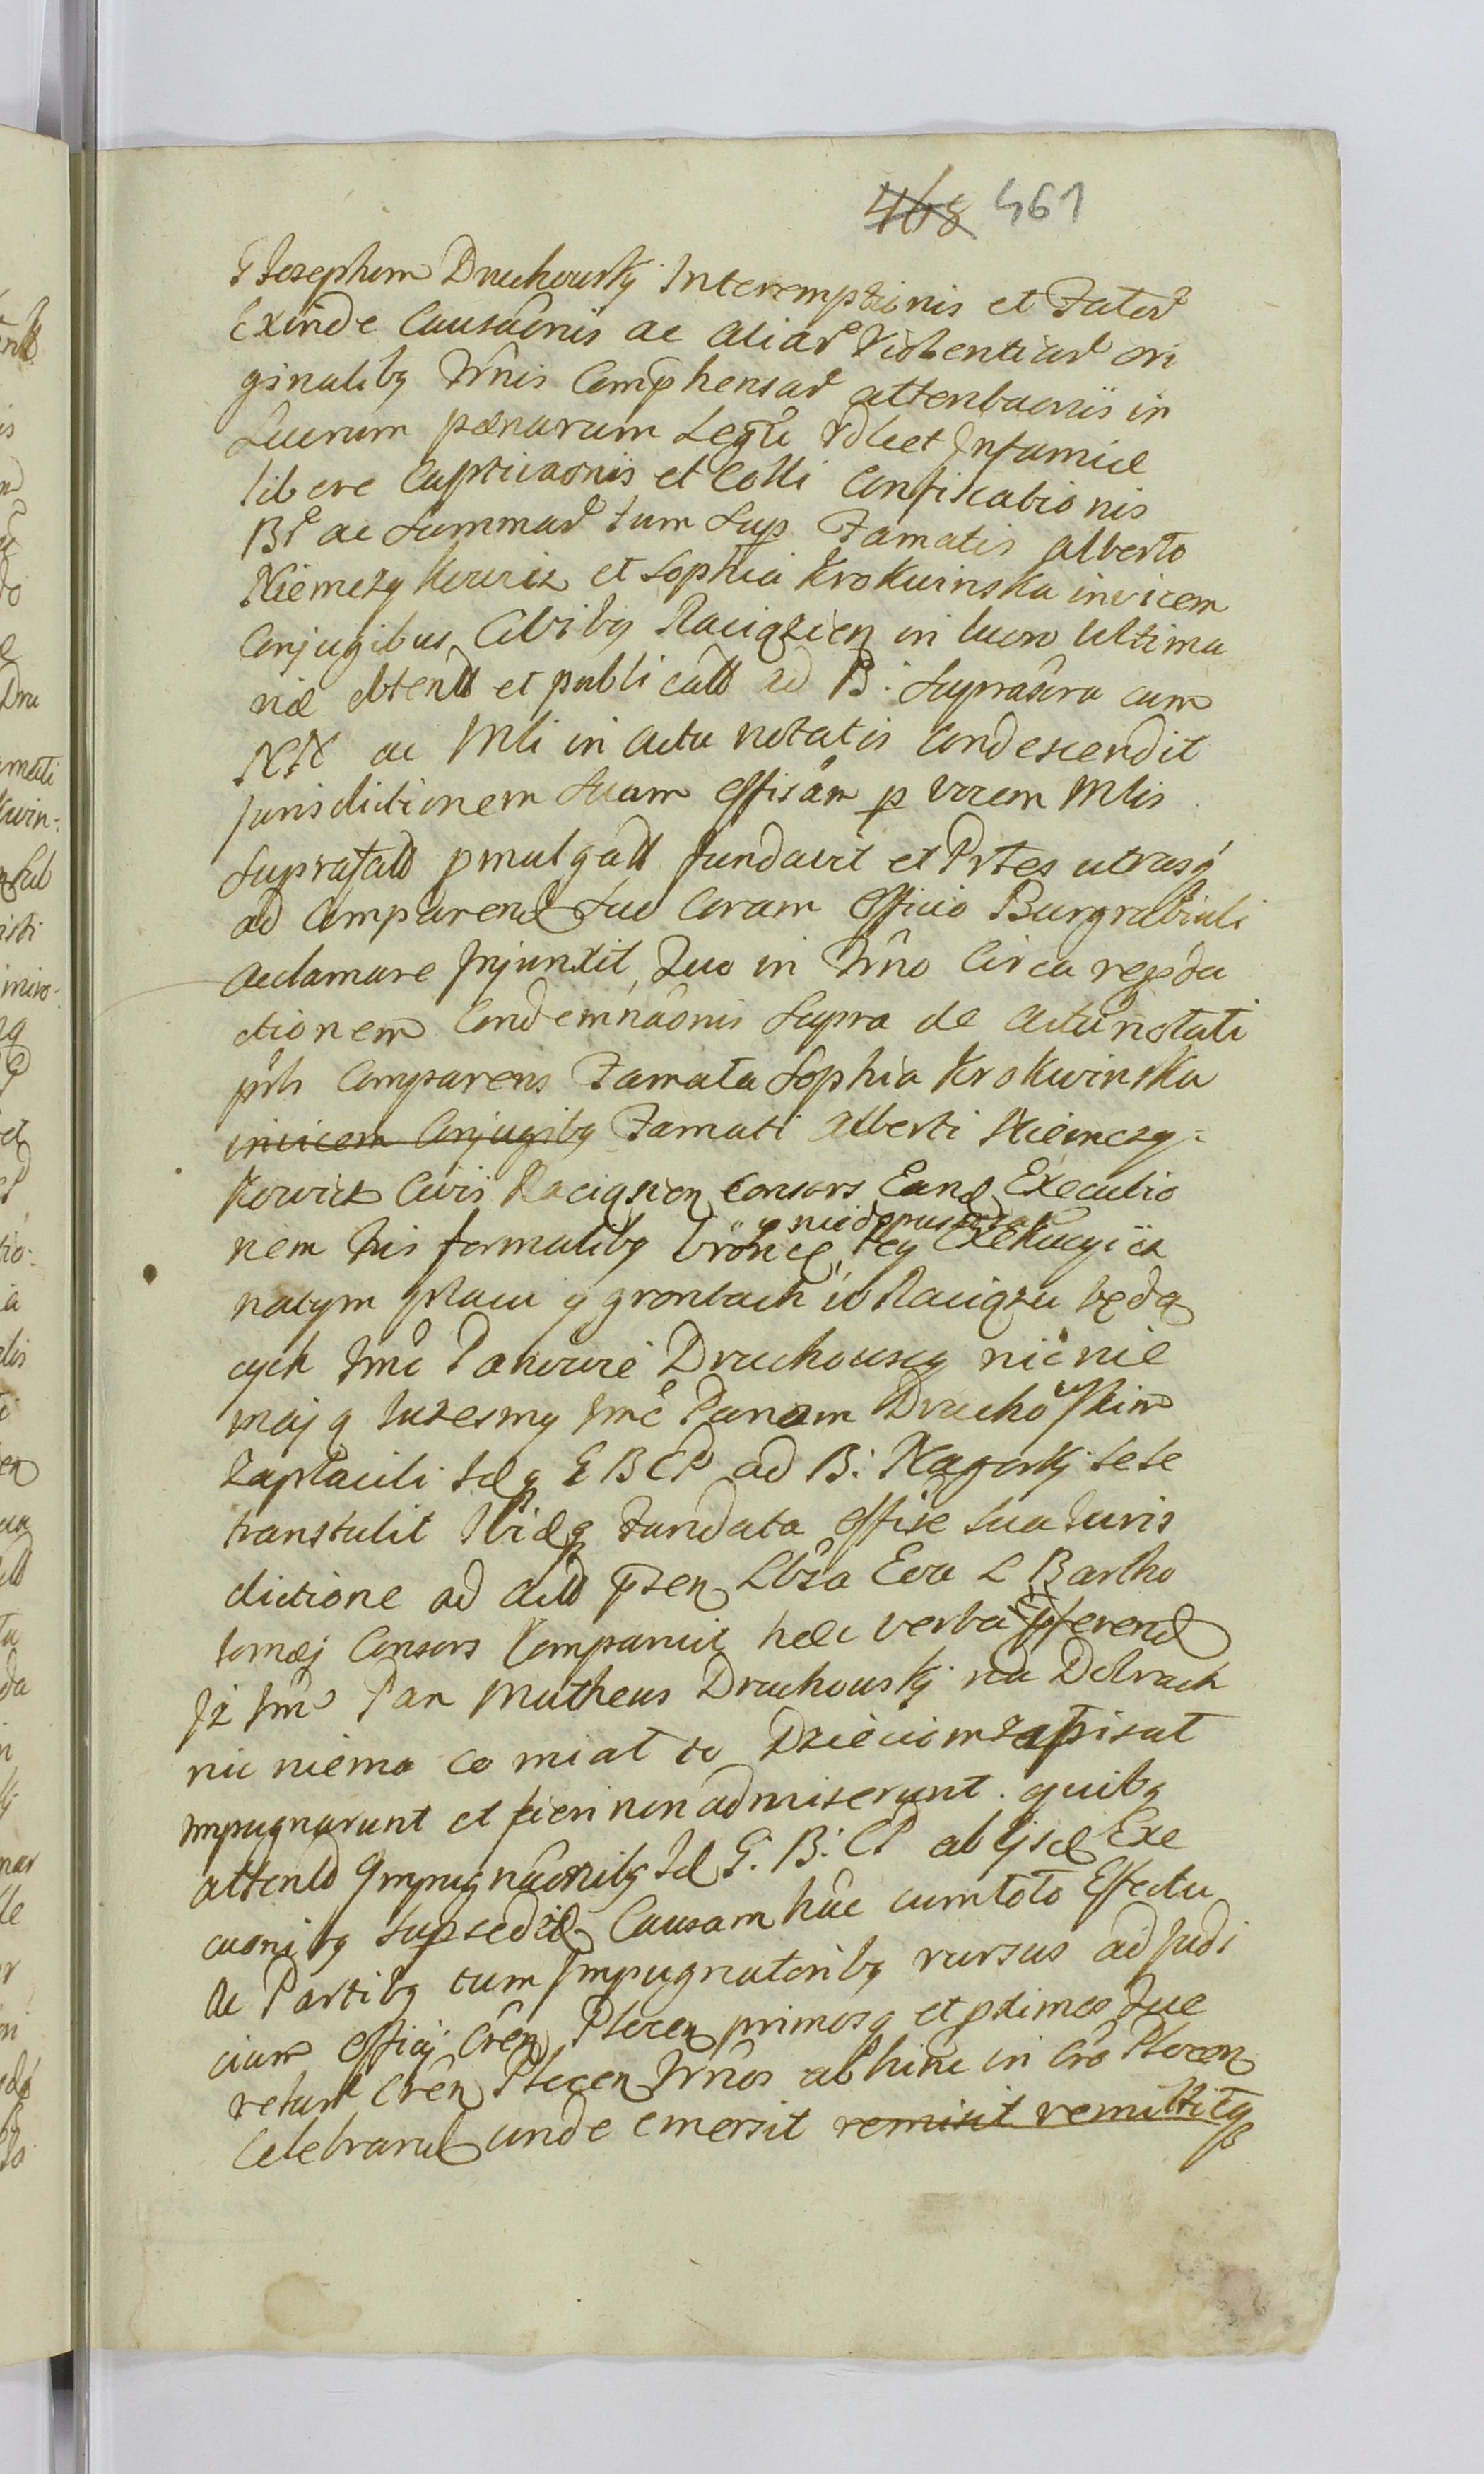 468 461
G Josephum Druchowskÿ Interemptionis et Fator
Exinde Causâonis ac aliar Violentiar ori
ginalibq Trmnis Comp̃hensar attenbaonis in
Lucrum pœnarum Legu et Infamiæ
libere Captivaonis et Colli Confiscationis
Br ac Summar tum Sup Famatis Alberto
Niemczykowicz et Sophia Krokwinska invicem
Conjugibus Civibq Raciązien in lucro Ultima
riæ obtent et publicatt ad B: Suprascra cum
NN ac Mli in Actu notatis Condescendit
Jurisdictionem Suam Offisâm p Vocem Mlis
Suprafatt pmulgatt fundavit et Prtes utrasq
ad Comparend Suo Coram Officio Burgrabiali
acclamare Injunxit, Quo in Trm̂no Circa rependa
ctionem Condemnâonis Supra de Actu notati
prlr Comparens Famata Sophia Krokwinska
invicem Conjugibq Famati Alberti Niemczy=
kowicz Civis Raciązien Consors Eand Executio
nem his formalibq bronię, y niedopuszczam tey Exekucyi ia
natym placu y grontach w Raciązu będą
cych Jmc Panowie Druchowscy nic nie
mają luzesmy Jmc Panom Druchowskim
zaplacili Idq G B CP ad B: Nagorkÿ sese
transtulit Ibidq Fundata Offise sua Juris
dictione ad Actt p̃sen Lbra Eva L Bartho
lomæj Consors Comparuit hæc verba pferend
Jż Jm̃ Pan Matheus Druchowskÿ na Dobrach
nic niema co miał to Dzieciom zapisał
Impugnarunt et fieri non admiserunt. quibq
attentt Impugnâonibq Id G. B. CP ab Ejsd Exe
cuonibq supsedit Causam hâc cum toto Effectu
Ac Partibq cum Impugnatoribq rursus ad Judi
cium Offïcÿ Crên Plocen primosq et pximos Quæ
relar Crên Plocen Trmnos abhinc in Cro Plocen
Celebrand unde emersit remisit remittitq